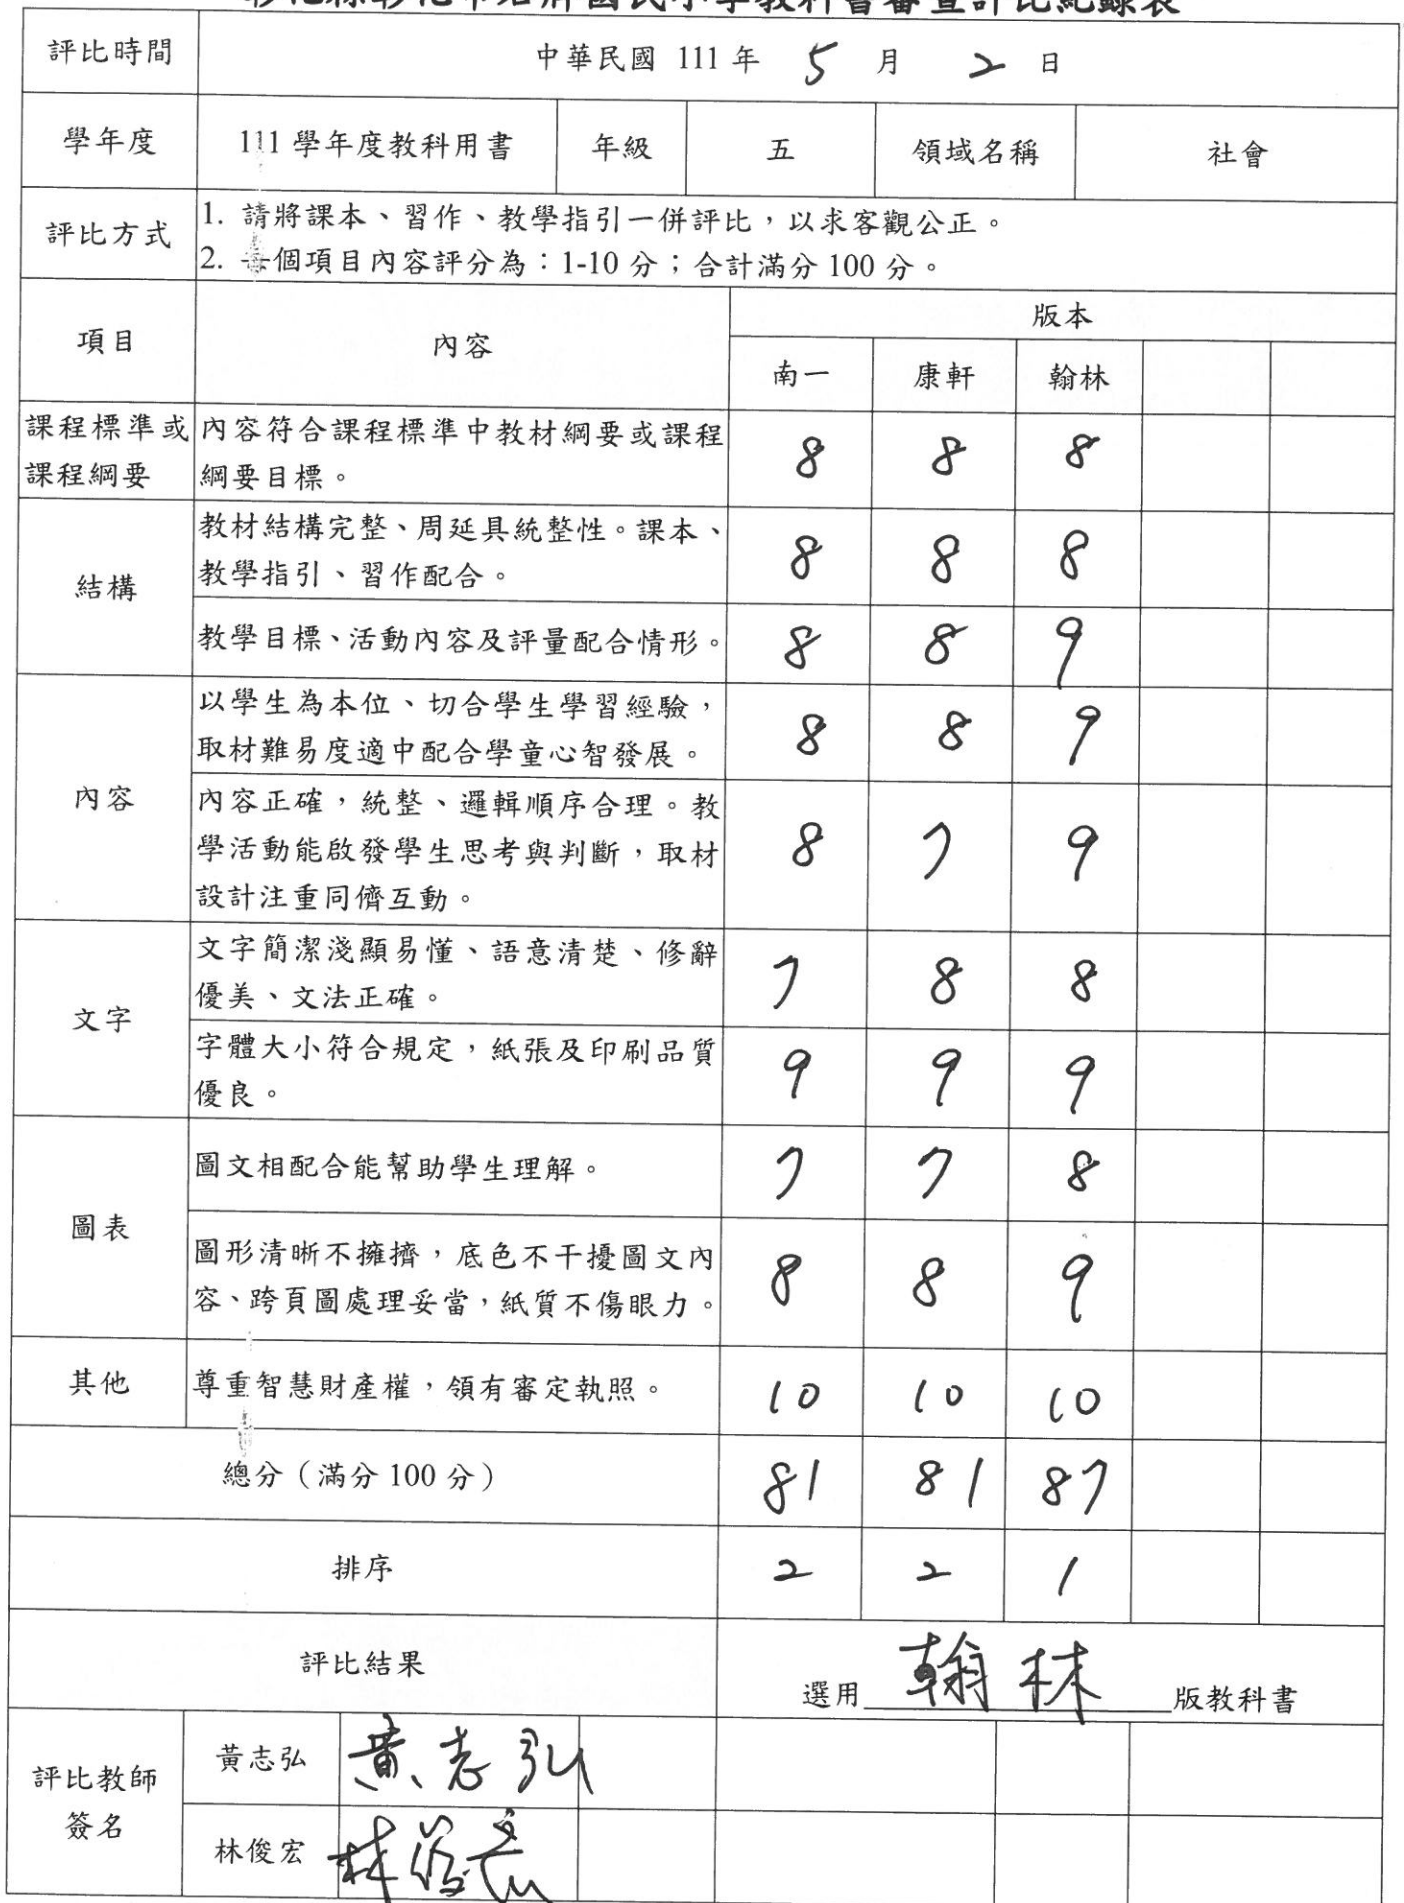 彰化縣彰化市 國民小學教科書審查評比紀錄表
評比時間 中華民國 111 年 5 月 2 日
學年度 111 學年度教科用書 年級 五 領域名稱 社會
評比方式 1. 請將課本、習作、教學指引一併評比，以求客觀公正。
2. 每個項目內容評分為：1-10 分；合計滿分 100 分。
項目 內容 版本
南一 康軒 翰林
課程標準或 內容符合課程標準中教材綱要或課程
課程綱要 綱要目標。 8 8 8
結構 教材結構完整、周延具統整性。課本、
教學指引、習作配合。 8 8 8
教學目標、活動內容及評量配合情形。 8 8 9
內容 以學生為本位、切合學生學習經驗，
取材難易度適中配合學童心智發展。 8 8 9
內容正確，統整、邏輯順序合理。教
學活動能啟發學生思考與判斷，取材 8 7 9
設計注重同儕互動。
文字 文字簡潔淺顯易懂、語意清楚、修辭
優美、文法正確。 7 8 8
字體大小符合規定，紙張及印刷品質
優良。 9 9 9
圖表 圖文相配合能幫助學生理解。 7 7 8
圖形清晰不擁擠，底色不干擾圖文內
容、跨頁圖處理妥當，紙質不傷眼力。 8 8 9
其他 尊重智慧財產權，領有審定執照。 10 10 10
總分（滿分 100 分） 81 81 87
排序 2 2 1
評比結果 選用 翰林 版教科書
評比教師
簽名
黃志弘 黃志弘
林俊宏 林俊宏